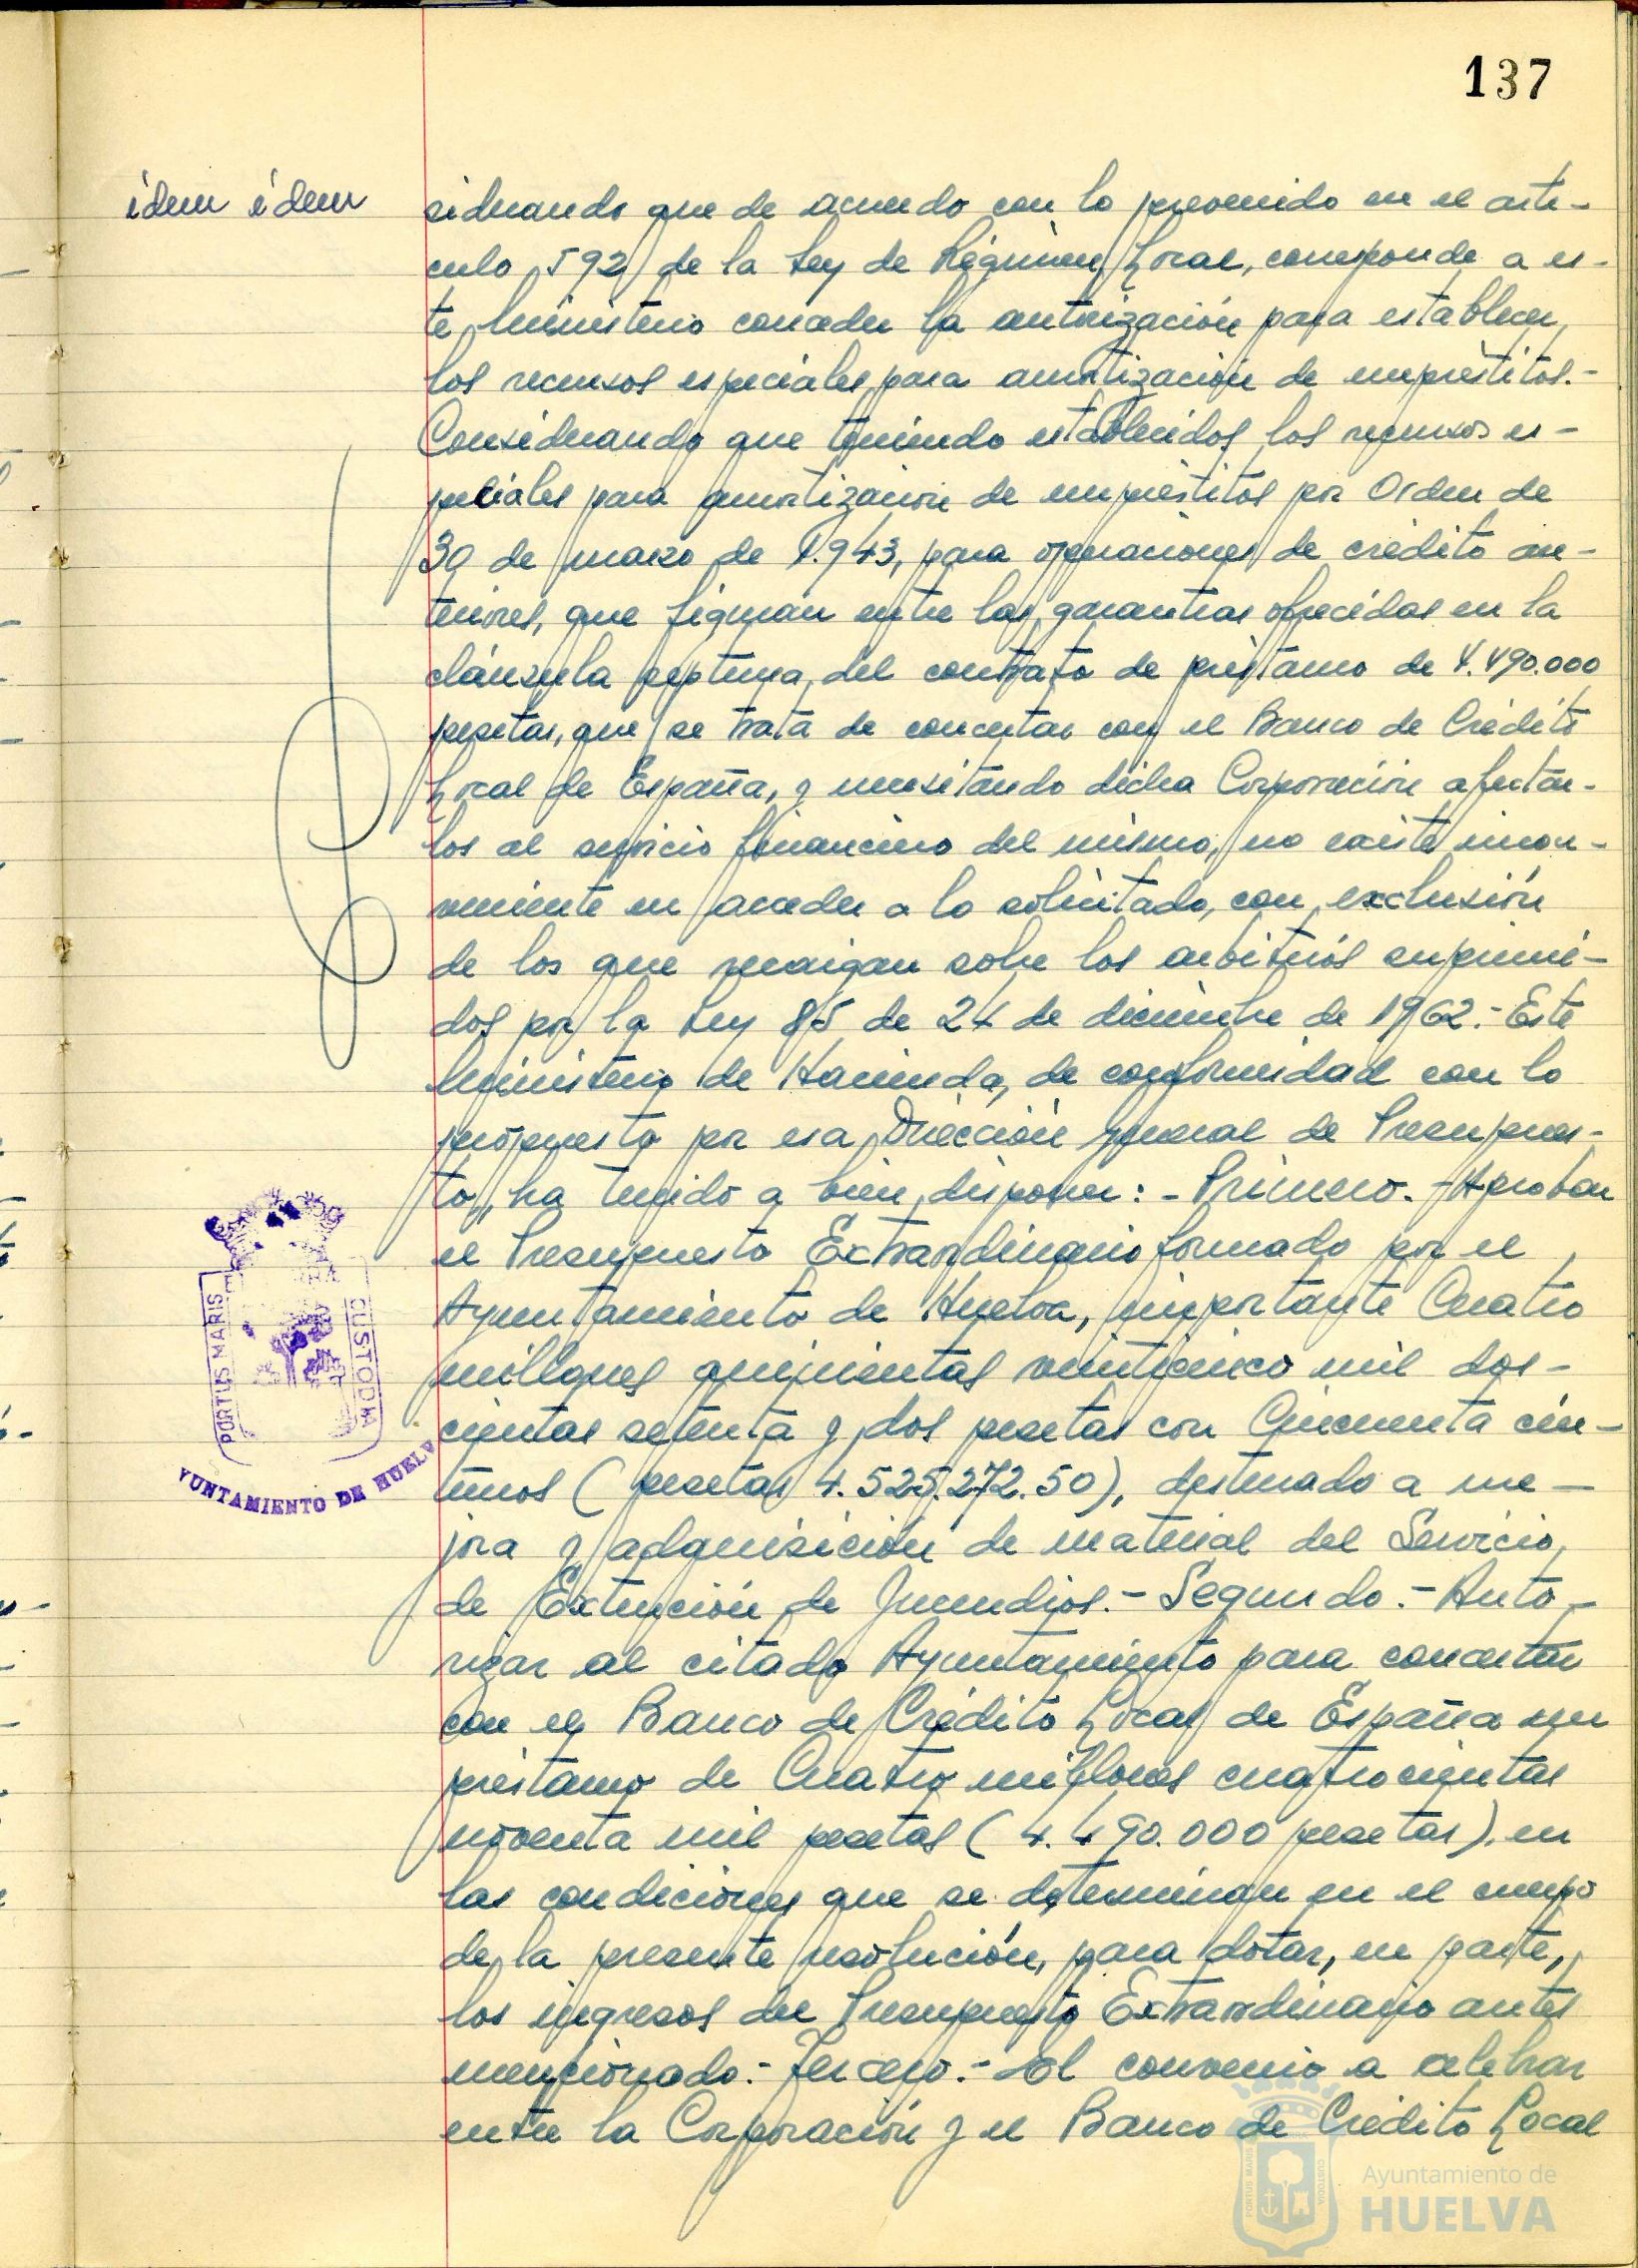 137
idem idem
siderando que de acuerdo con lo prevenido en el artí-
culo 592 de la Ley de Régimen Local, corresponde a es-
te Ministerio conceder la autorización para establecer
los recursos especiales para amortización de empréstitos.-
Considerando que teniendo establecidos los recursos es-
peciales para amortización de empréstitos por Orden de
30 de marzo de 1.943, para operaciones de crédito an-
teriores, que figuran entre las garantías ofrecidas en la
cláusula septima, del contrato de préstamo de 4.490.000
pesetas, que se trata de concertar con el Banco de Crédito
Local de España, y necesitando dicha Corporación afectar-
los al servicio financiero del mismo, no existe incon-
veniente en acceder a lo solicitado, con exclusión
de los que recaigan sobre los arbitrios suprimi-
dos por la Ley 85 de 24 de diciembre de 1962.- Este
Ministerio de Hacienda, de conformidad con lo
propuesto por esa Dirección general de Presupues-
to, ha tenido a bien disponer: - Primero. - Aprobar
el Presupuesto Extraordinario formado por el
Ayuntamiento de Huelva, importante Cuatro
millones quinientas veinticinco mil dos-
cientas setenta y dos pesetas con Cincuenta cén-
timos (pesetas 4.525.272.50), destinado a me-
jora y adquisición de material del Servicio
de Extinción de Incendios.- Segundo.- Auto-
rizar al citado Ayuntamiento para concertar
con el Banco de Crédito Local de España un
préstamo de Cuatro millones cuatrocientas
noventa mil pesetas (4.490.000 pesetas). en
las condiciones que se determinan en el cuerpo
de la presente resolución, para dotar, en parte,
los ingresos del Presupuesto Extraordinario antes
mencionado.- Tercero.- El convenio a celebrar
entre la Corporación y el Banco de Crédito Local
PORTUS MARIS
CUSTODIA
YUNTAMIENTO DE HUELV
Ayuntamiento de
HUELVA